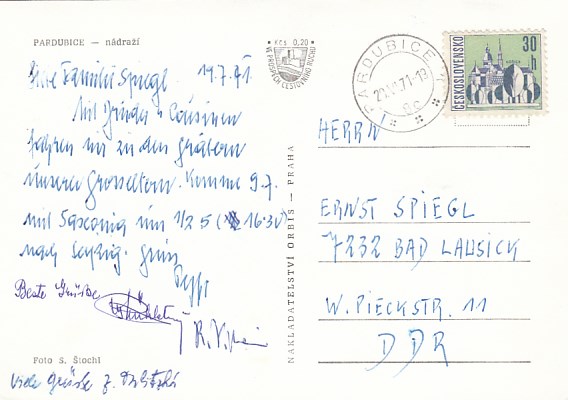 PARDUBICE — nádraží
Kčs 0,20
VE PROSPĚCH CESTOVNÍHO RUCHU
PARDUBICE
ČESKOSLOVENSKO
30 h
Familie Spiegl 19.7.71
Mit Cousinen
fahren wir zu den Gräbern
unserer Grosseltern. Komme 9.7.
mit Saxonia um 1/2 5 (16.30)
nach Leipzig.
Beste Grüße
Foto S. Štochl
Viele Grüße
NAKLADATELSTVÍ ORBIS — PRAHA
HERRN
ERNST SPIEGL
7232 BAD LAUSICK
W. PIECKSTR. 11
DDR